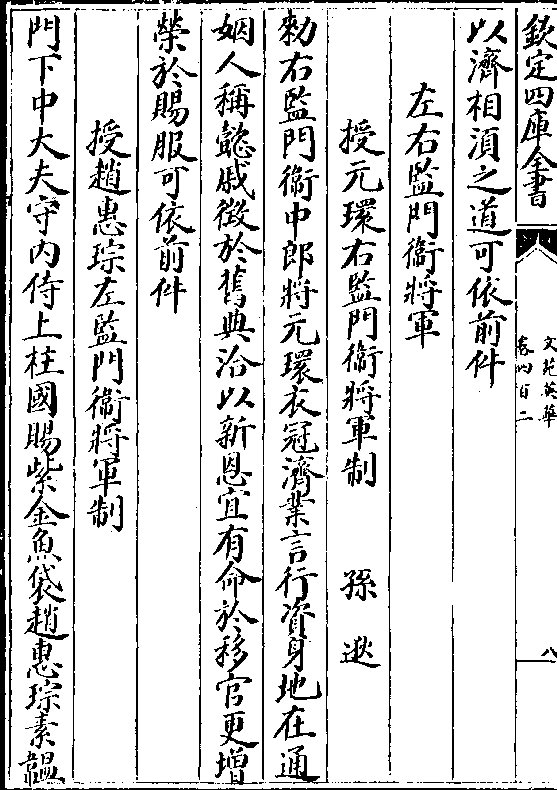 欽定四庫全書
文苑英華
卷四百二
八
以濟相須之道可依前件
左右監門衛將軍
授元環右監門衛將軍制 孫逖
勅右監門衛中郎將元環衣冠濟業言行資身地在通
姻人稱懿戚徵於舊典洽以新恩宜有命於移官更增
榮於賜服可依前件
授趙惠琮左監門衛將軍制
門下中大夫守內侍上柱國賜紫金魚袋趙惠琮素韞